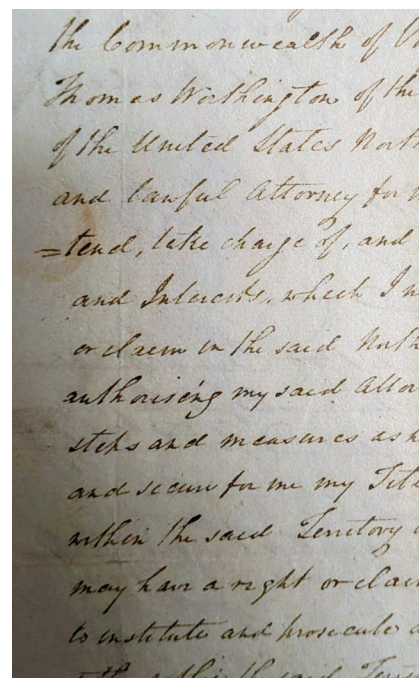 the Commonwealth of V
Thomas Worthington of the
of the United States North
and lawful Attorney for
=tend, take charge of, and
and Interests, which I
or claim in the said North
authorising my said Attor
steps and measures as h
and secure for me my Titl
within the said Territory
may have a right or clai
to institute and prosecute a
the said Terri